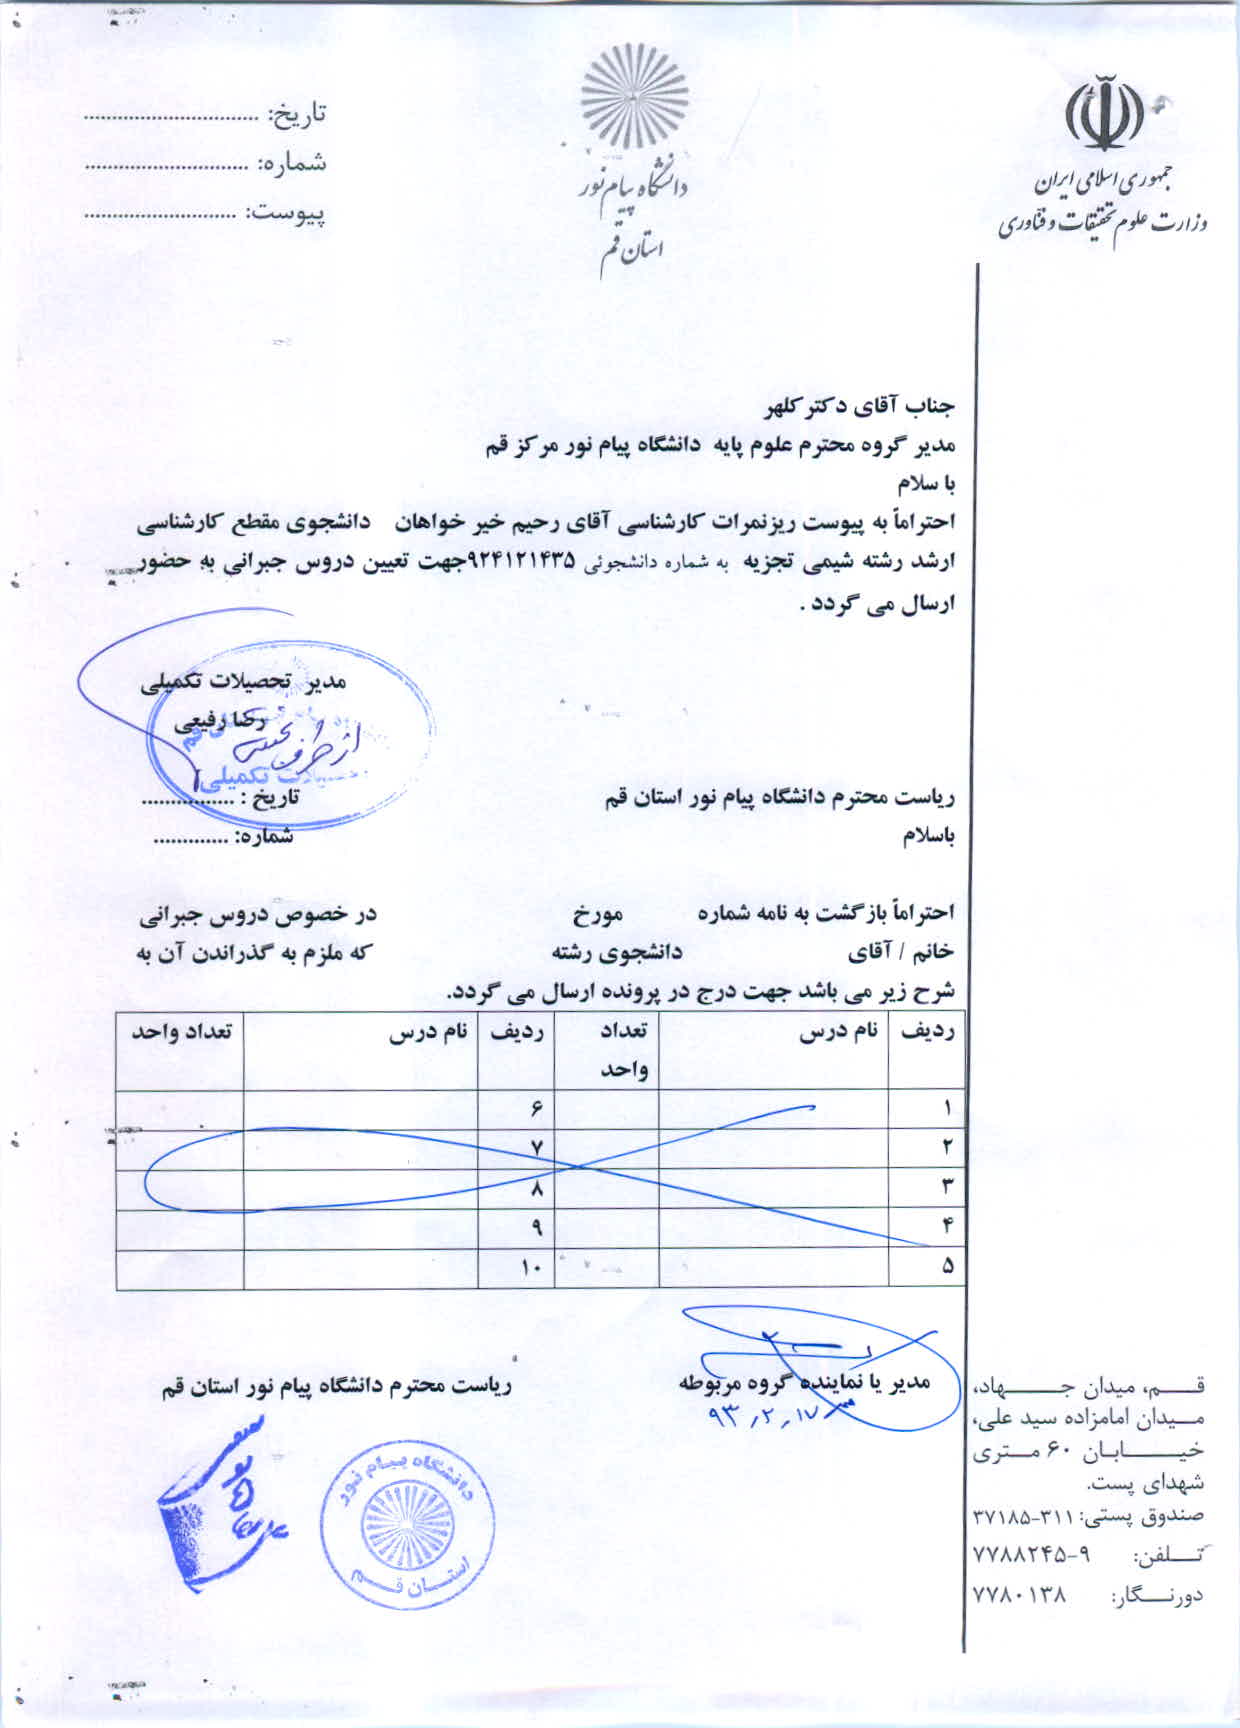 جمهوری اسلامی ایران
وزارت علوم تحقیقات و فناوری
دانشگاه پیام نور
استان قم
تاریخ: ..............................
شماره: ............................
پیوست: ..........................
جناب آقای دکتر کلهر
مدیر گروه محترم علوم پایه دانشگاه پیام نور مرکز قم
با سلام
احتراماً به پیوست ریزنمرات کارشناسی آقای رحیم خیر خواهان دانشجوی مقطع کارشناسی
ارشد رشته شیمی تجزیه به شماره دانشجوئی ۹۲۴۱۲۱۴۳۵جهت تعیین دروس جبرانی به حضور
ارسال می گردد .
مدیر تحصیلات تکمیلی
رضا رفیعی
از طرف
تحصیلات تکمیلی
ریاست محترم دانشگاه پیام نور استان قم
تاریخ : ................
باسلام
شماره: .............
احتراماً بازگشت به نامه شماره مورخ در خصوص دروس جبرانی
خانم / آقای دانشجوی رشته که ملزم به گذراندن آن به
شرح زیر می باشد جهت درج در پرونده ارسال می گردد.
ردیف نام درس تعداد واحد ردیف نام درس تعداد واحد
۱ ۶
۲ ۷
۳ ۸
۴ ۹
۵ ۱۰
مدیر یا نماینده گروه مربوطه
۹۳/۲/۱۷
ریاست محترم دانشگاه پیام نور استان قم
دانشگاه پیام نور
استان قم
قم، میدان جهاد،
میدان امامزاده سید علی،
خیابان ۶۰ متری
شهدای پست.
صندوق پستی: ۳۷۱۸۵-۳۱۱
تلفن: ۷۷۸۸۲۴۵-۹
دورنگار: ۷۷۸۰۱۳۸